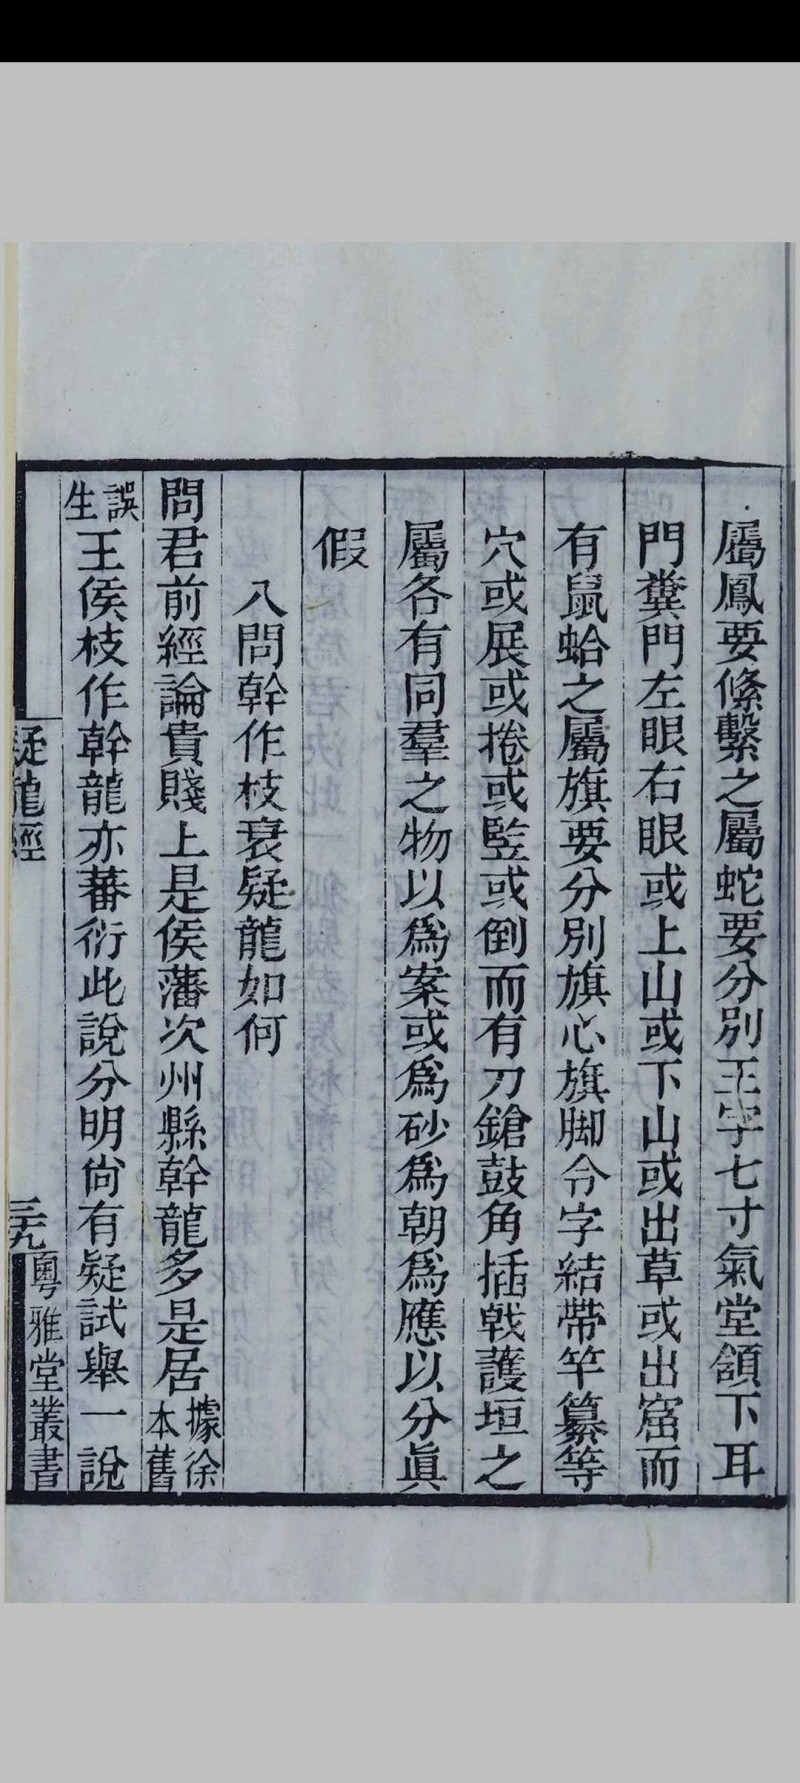 屬鳳要絛繫之屬蛇要分別王字七寸氣堂頷下耳
門糞門左眼右眼或上山或下山或出草或出窟而
有鼠蛤之屬旗要分別旗心旗脚令字結帶竿纂等
穴或展或捲或竪或倒而有刀鎗鼓角插戟護垣之
屬各有同羣之物以爲案或爲砂爲朝爲應以分眞
假
八問幹作枝衰疑龍如何
問君前經論貴賤上是侯藩次州縣幹龍多是居據徐
本舊
誤
生王侯枝作幹龍亦蕃衍此說分明尙有疑試舉一說
疑龍經
三九
粵雅堂叢書